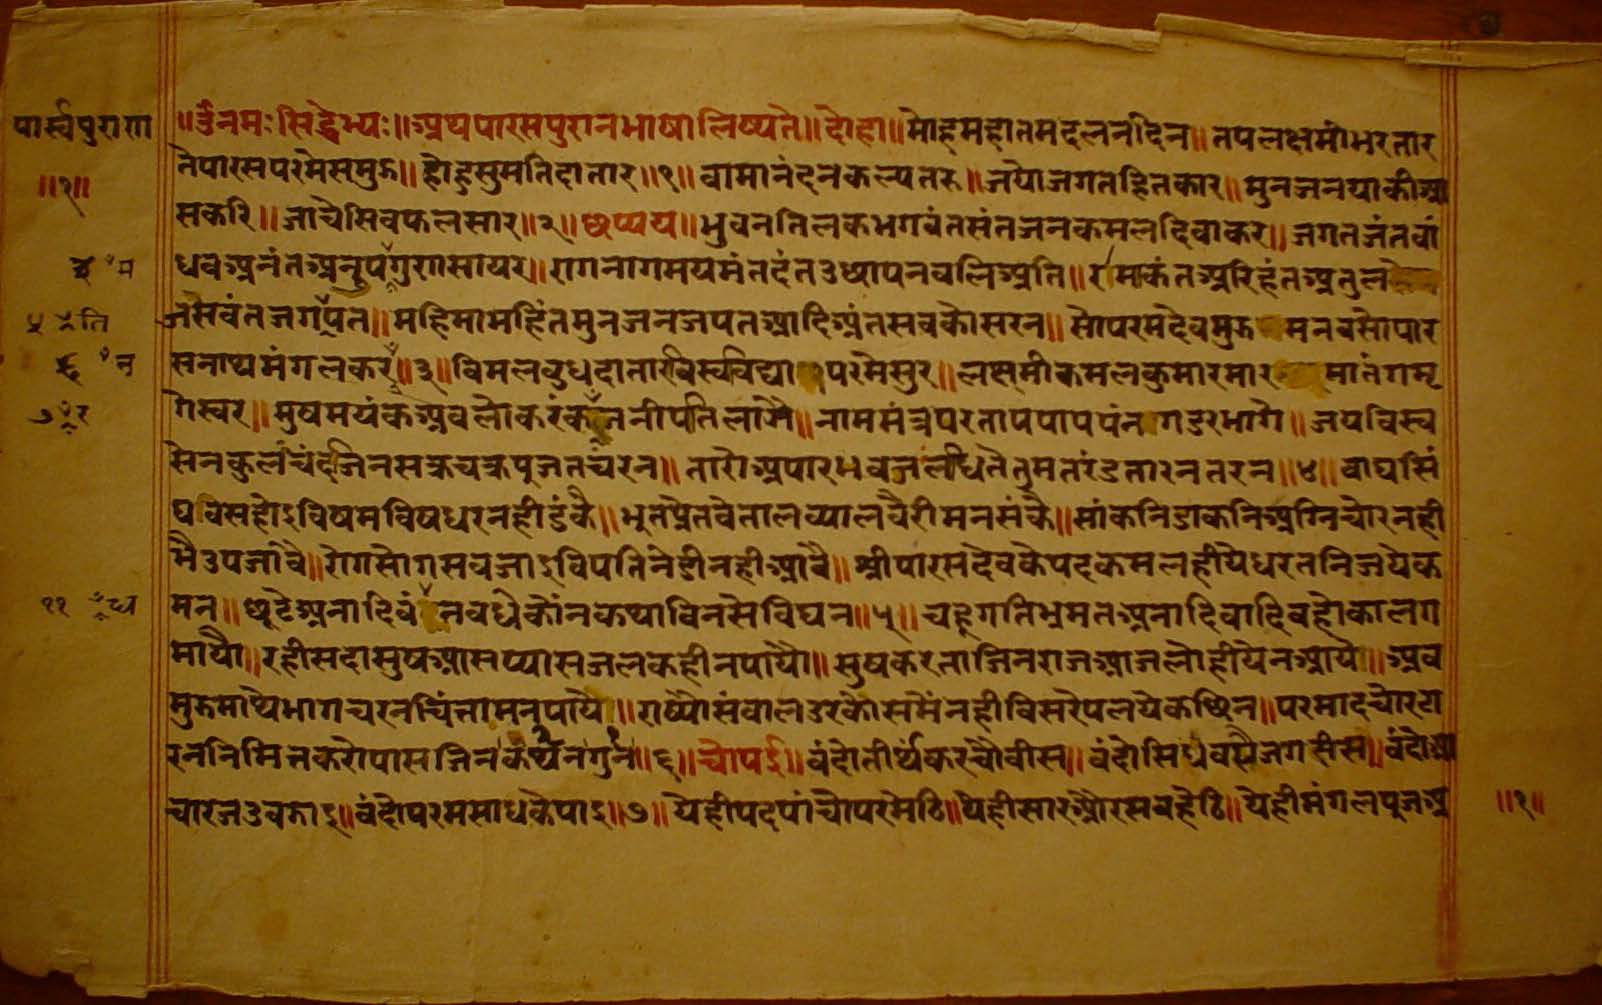 पार्स्वपुराण
॥१॥
॥ॐनमःसिद्धेभ्यः॥अथपारसपुरानभाषालिष्यते॥दोहा॥मोहमहातमदलनदिन॥तपलक्षमीभरतार
तेपारसपरमेसमुझ॥होहुसुमतिदातार॥१॥वामानंदनकल्पतरु॥जयोजगतहितकार॥मुनजनयाकीआ
सकरि॥जाचैसिवफलसार॥२॥छप्पय॥भुवनतिलकभगवंतसंतजनकमलदिवाकर॥जगतजंतवां
धवअनंतअनुपगुणसायर॥रागनागमयमंतदंतउथापनवलिअति॥रमाकंतअरिहंतअतुल
जसवंतजगपत॥महिमामहिंतमुनजनजपतआदिअंतसवकौसरन॥सोपरमदेवमुझ मनवसोपार
सनाथमंगलकर॥३॥विमलवुधदातारविस्वविद्या परमेसुर॥लछमीकमलकुमारमार मातंगमृ
गेस्वर॥मुषमयंकअवलोकरंक जनीपतिलाजै॥नाममंत्रपरतापपापपंन गडरभागै॥जयविस्व
सेनकुलचंदजिनसक्रचक्रपुजतचरन॥तारोअपारभवजलधितैतुमतरंडतारनतरन॥४॥वाघसिं
घविसहोइविषमविषधरनहीडंकै॥भुतप्रेतवेतालव्यालवैरीमनसंकै॥सांकनिडाकनिअग्निचोरनही
भैउपजावै॥रोगसोगसवजाइविपतिनेडीनहीआवै॥श्रीपारसदेवकेपदकमलहीयेधरतनिजयेक
मन॥छूटेअनादिवं नवधेकोंनकथाविनसैविघन॥५॥चहूगतिभ्रमतअनादिवादिवहोकालग
मायौ॥रहीसदासुषआसप्यासजलकहीनपायौ॥सुषकरताजिनराजआजलोहीयेनआयै॥अव
मुझमाथेभागचरनचिंतामनपायै॥राष्यौसंवालउरकोसमैंनहीविसरैपलयेकछिन॥परमादचोरटा
रननिमितकरोपासजिनकथनगुन॥६॥चौपई॥वंदोतीर्थकरचौवीस॥वंदोसिधवसैजगसीस॥वंदोआ
चारजउवझाइ॥वंदोपरमसाधकेपाइ॥७॥येहीपदपांचौपरमेठि॥येहीसारऔरसवहेठि॥येहीमंगलपुजअ
॥१॥